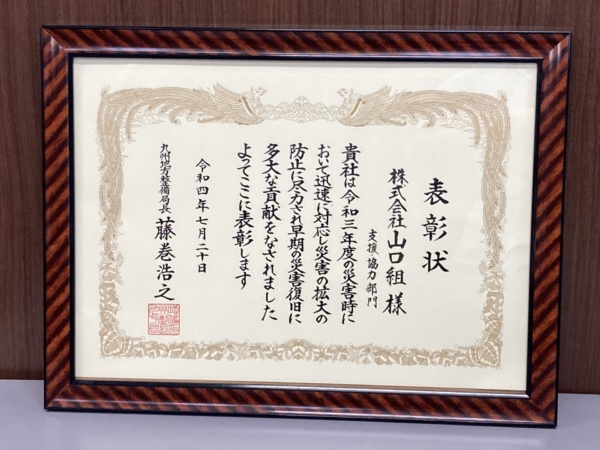 表彰状
株式会社山口組様
支援・協力部門
貴社は令和三年度の災害時に
おいて迅速に対応し災害の拡大の
防止に尽力され早期の災害復旧に
多大な貢献をなされました
よってここに表彰します
令和四年七月二十日
九州地方整備局長 藤巻浩之